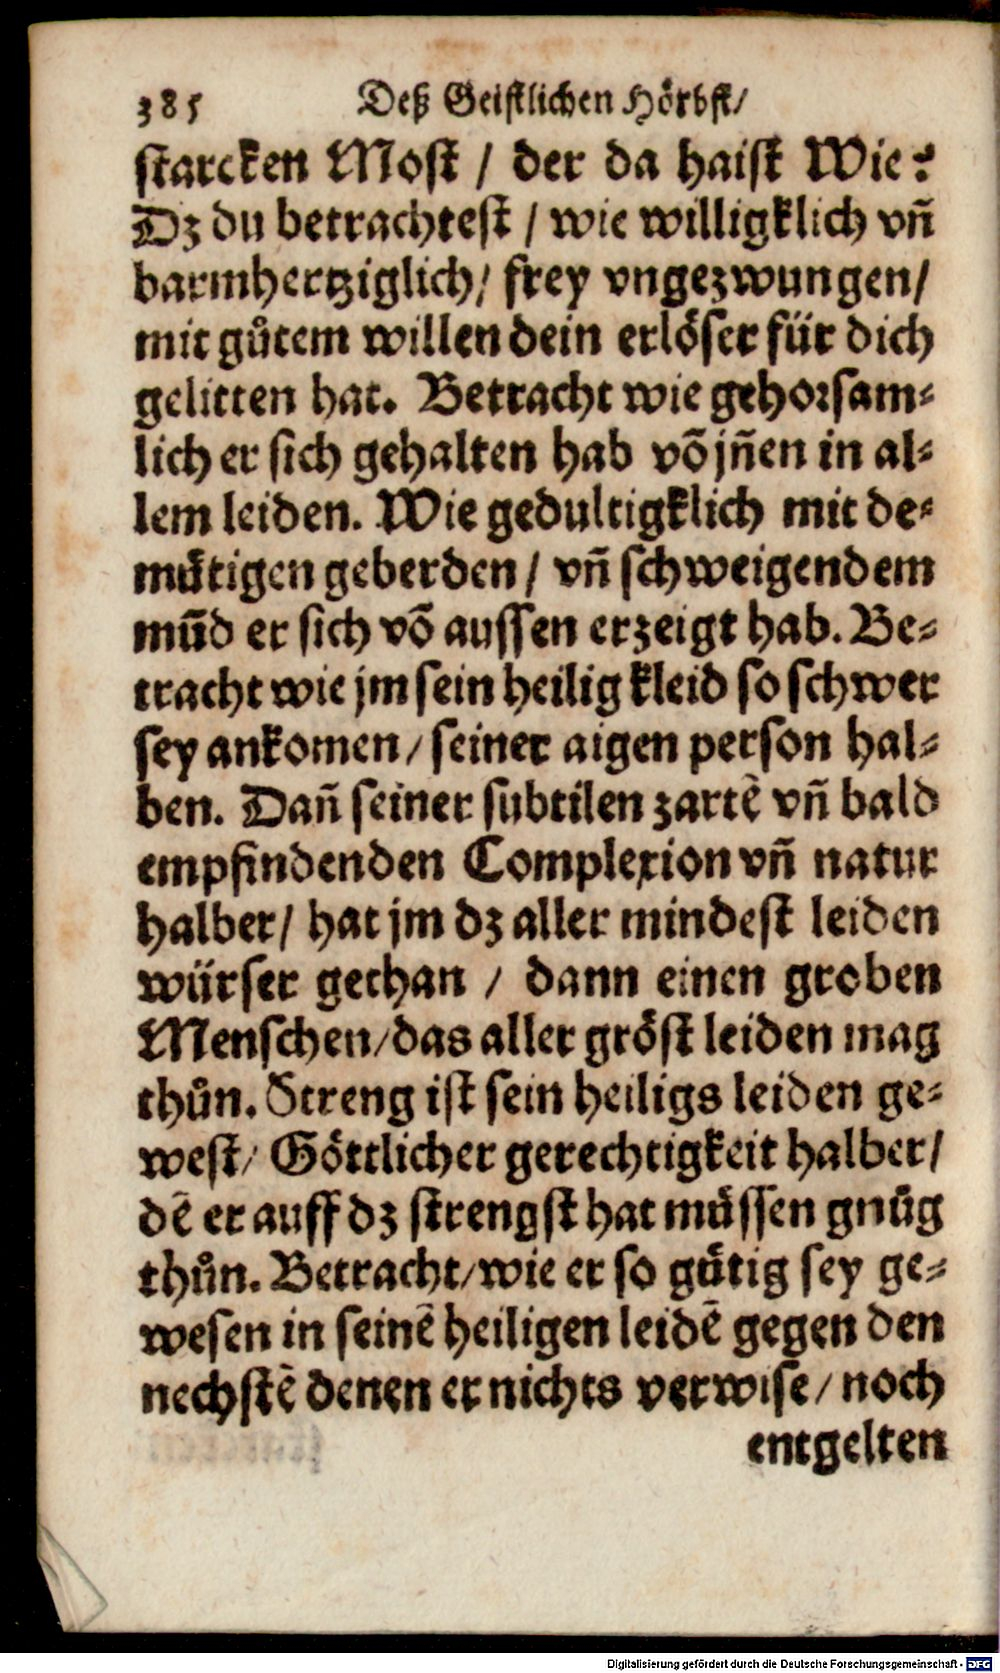 385 Deß Geistlichen Hörbst/
starcken Most / der da haist Wie?
Dz du betrachtest / wie willigklich vñ
barmhertziglich/ frey vngezwungen/
mit gůtem willen dein erlöser für dich
gelitten hat. Betracht wie gehorsam-
lich er sich gehalten hab võ jñen in al-
lem leiden. Wie gedultigklich mit de-
mütigen geberden / vñ schweigendem
mũd er sich võ aussen erzeigt hab. Be-
tracht wie jm sein heilig kleid so schwer
sey ankomen / seiner aigen person hal-
ben. Dañ seiner subtilen zartẽ vñ bald
empfindenden Complexion vñ natur
halber / hat jm dz aller mindest leiden
würser gethan / dann einen groben
Menschen/das aller gröst leiden mag
thůn. Streng ist sein heiligs leiden ge-
west/ Göttlicher gerechtigkeit halber/
dẽ er auff dz strengst hat müssen gnůg
thůn. Betracht/wie er so gütig sey ge-
wesen in seinẽ heiligen leidẽ gegen den
nechstẽ denen er nichts verwise / noch
entgelten
Digitalisierung gefördert durch die Deutsche Forschungsgemeinschaft - DFG